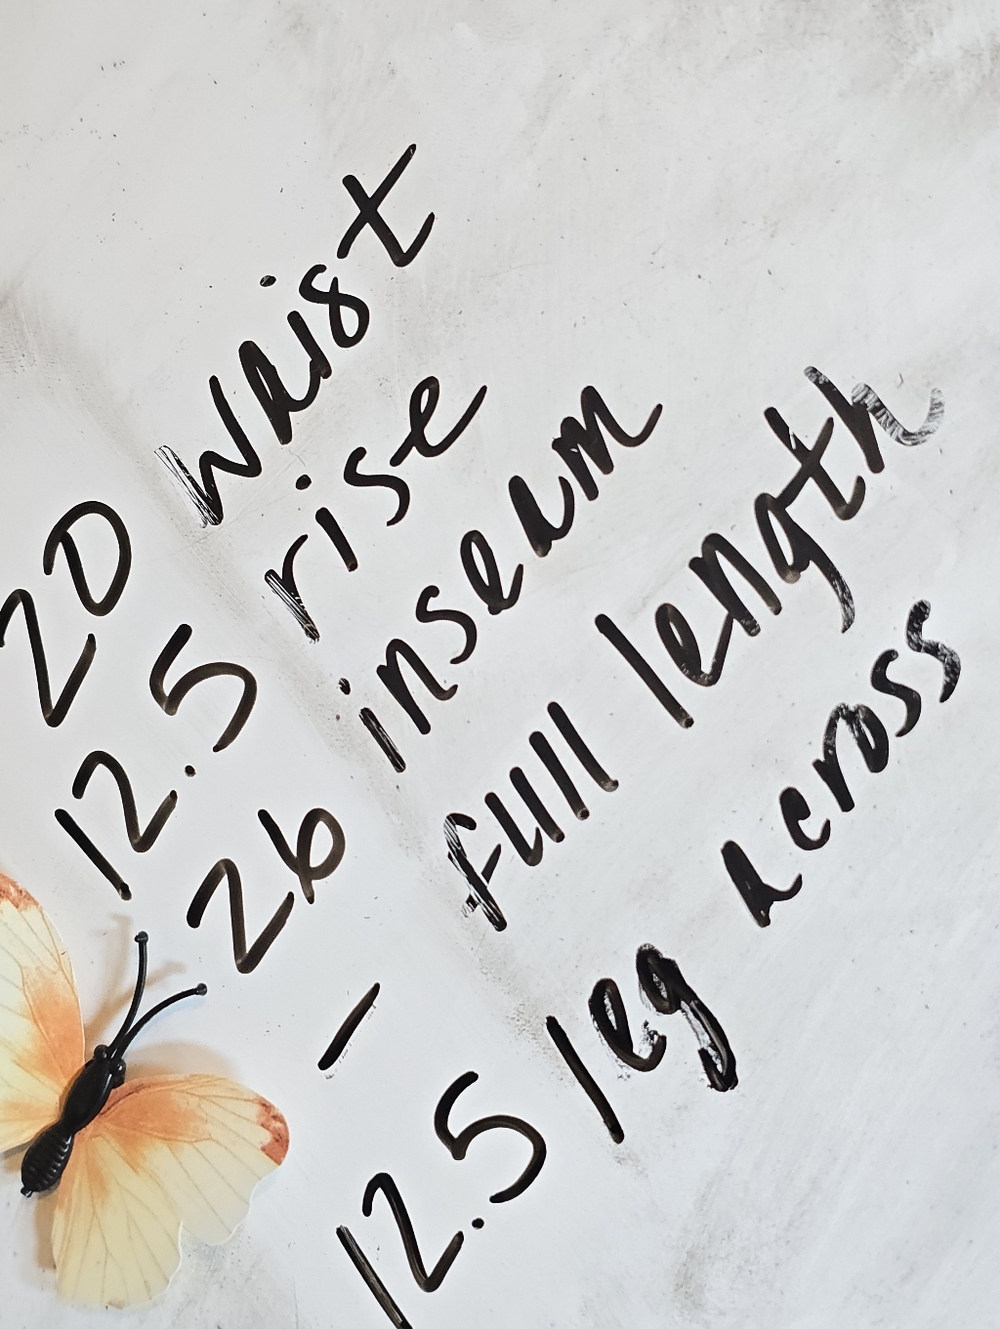 20 waist
12.5 rise
26 inseam
- full length
12.5 leg across